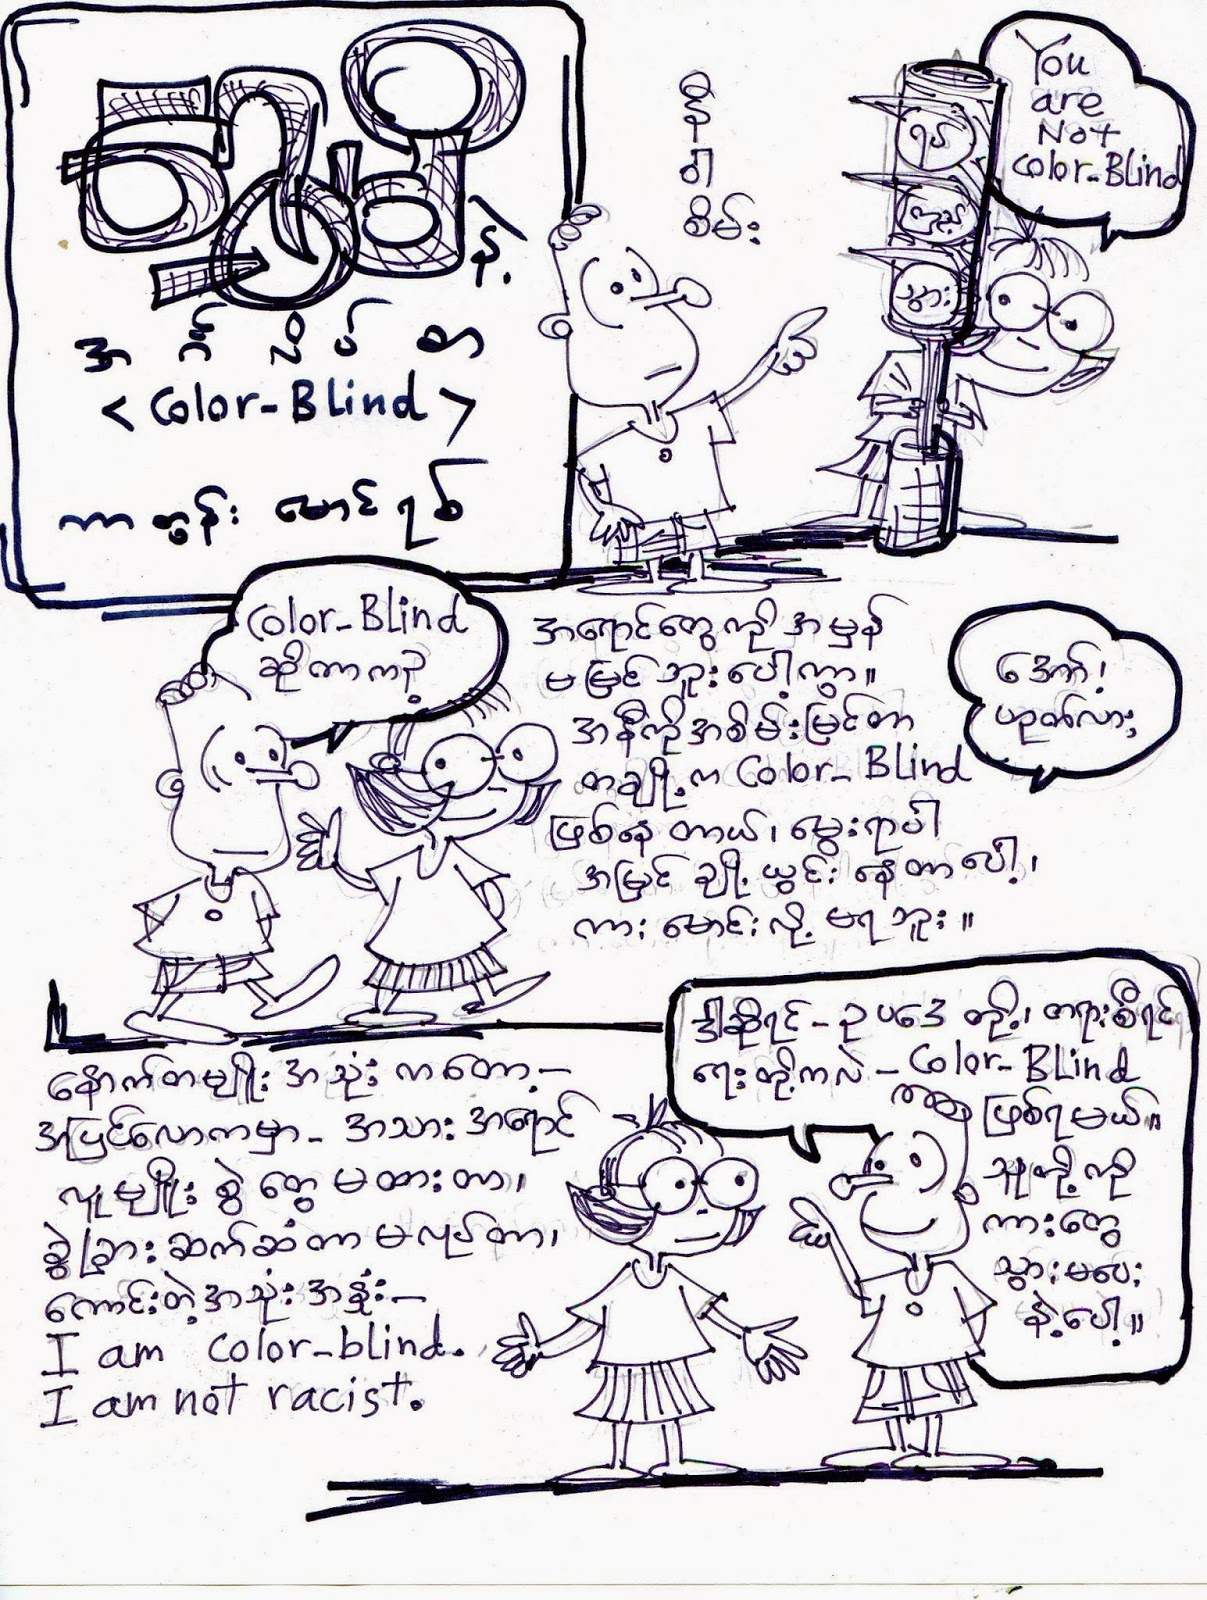 အင်္ဂလိပ်စာ
< Color-Blind >
ကာတွန်း မောင်ရစ်
ဝါ
စိမ်း
ရပ်
ကြည့်
သွား
You
are
Not
Color-Blind
Color-Blind
ဆိုတာက၃
အရောင်တွေကို အမှန်
မမြင်ဘူးပေါ့ကွာ။
အနီကိုအစိမ်းမြင်တာ
တချို့က Color-Blind
ဖြစ်နေတာယ်၊ မွေးရာပါ
အမြင် ချို့ယွင်းနေတာပေါ့၊
ကား မောင်းလို့ မရဘူး။
အော်!
ဟုတ်လား
နောက်တမျိုး အသုံးကတော့–
အပြင်လောကမှာ– အသားအရောင်
လူမျိုးစွဲတွေ မထားတာ၊
ခွဲခြားဆက်ဆံတာ မလုပ်တာ၊
ကောင်းတဲ့အသုံးအနှုံး–
I am color-blind.
I am not racist.
ဒါဆိုရင်–ဥပဒေတို့၊ တရားစီရင်
ရေးတို့ကလဲ–Color-Blind
ဖြစ်ရမယ်။
သူတို့ကို
ကားတွေ
သွားမပေး
နဲ့ပေါ့။